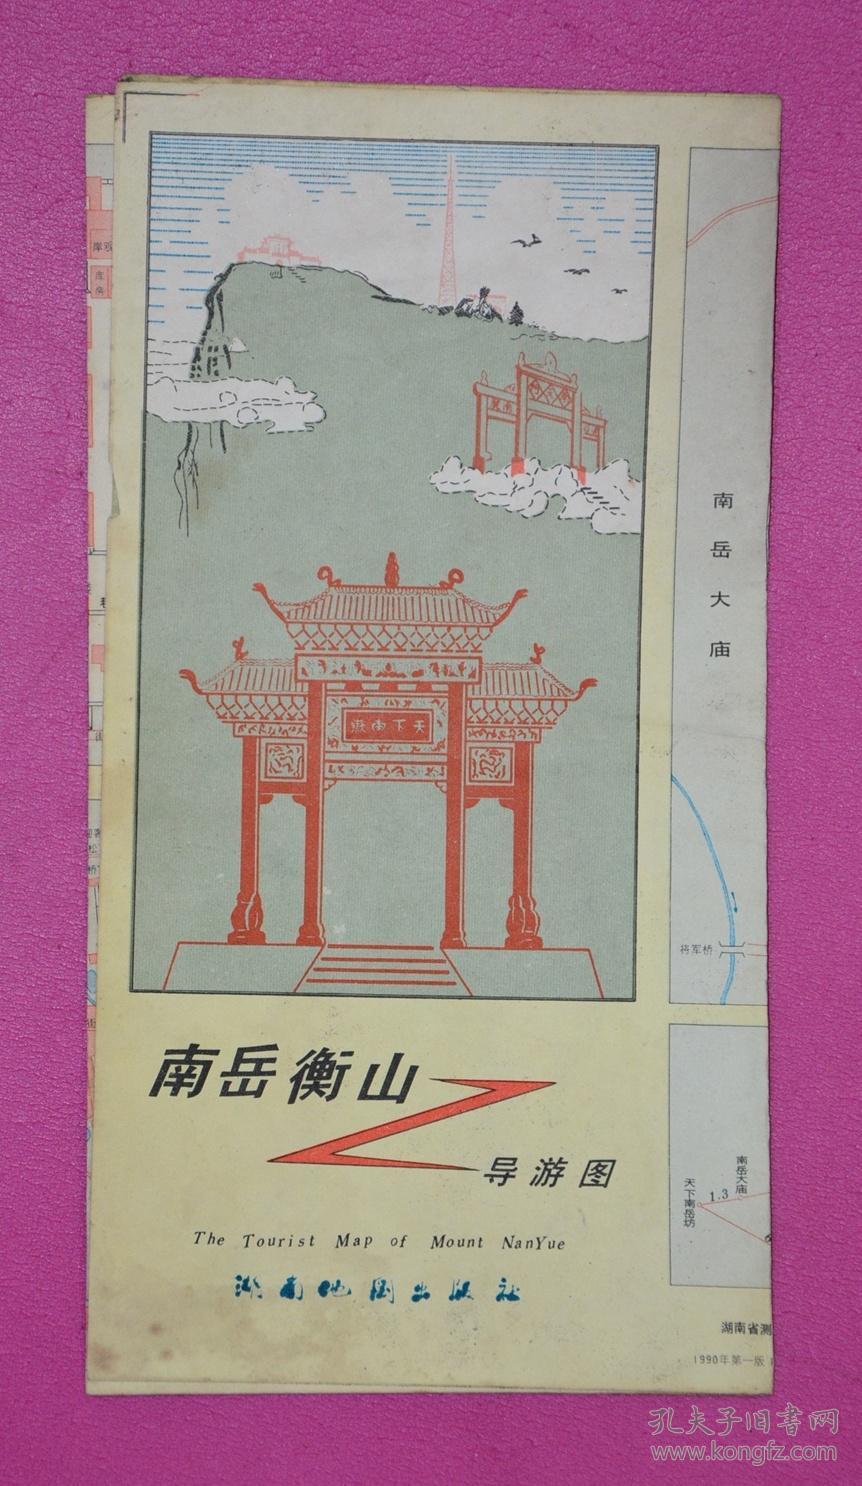 天下南嶽
南岳衡山
导游图
The Tourist Map of Mount NanYue
湖南地图出版社
南岳大庙
将军桥
南岳大庙
1.3
天下南岳坊
湖南省测
1990年第一版
孔夫子旧书网
www.kongfz.com